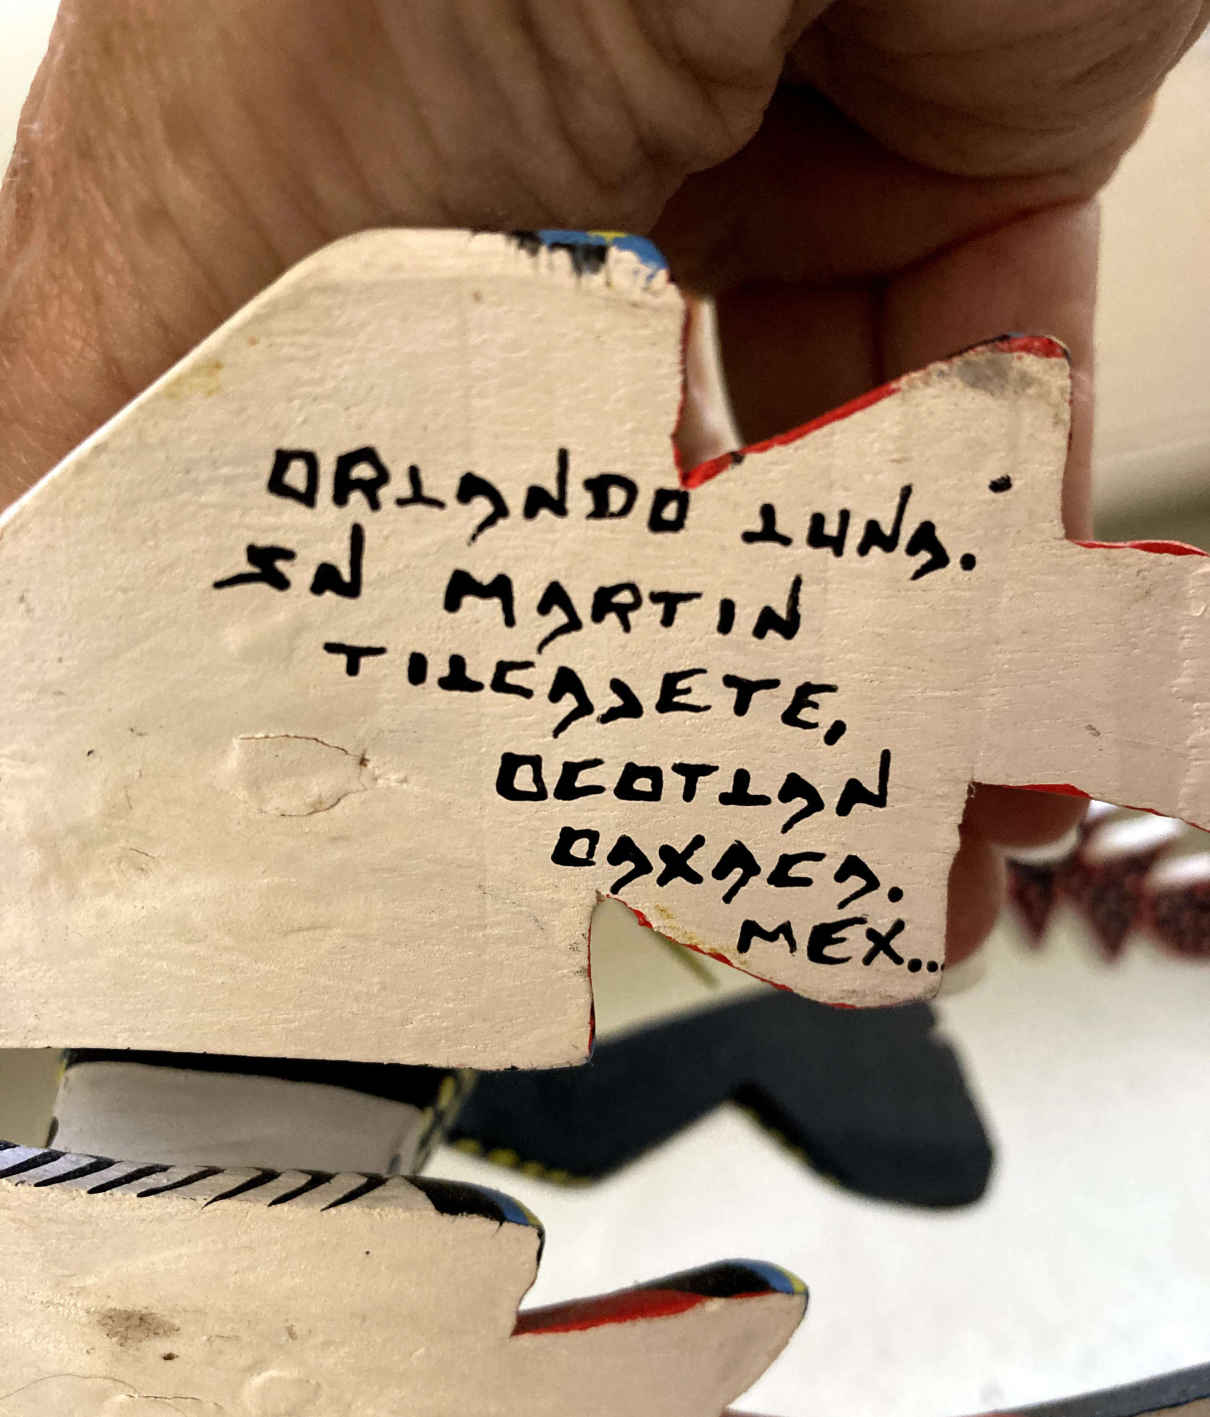 ORLANDO LUNA.
SN MARTIN
TILCASETE,
OCOTLAN
OAXACA.
MEX...